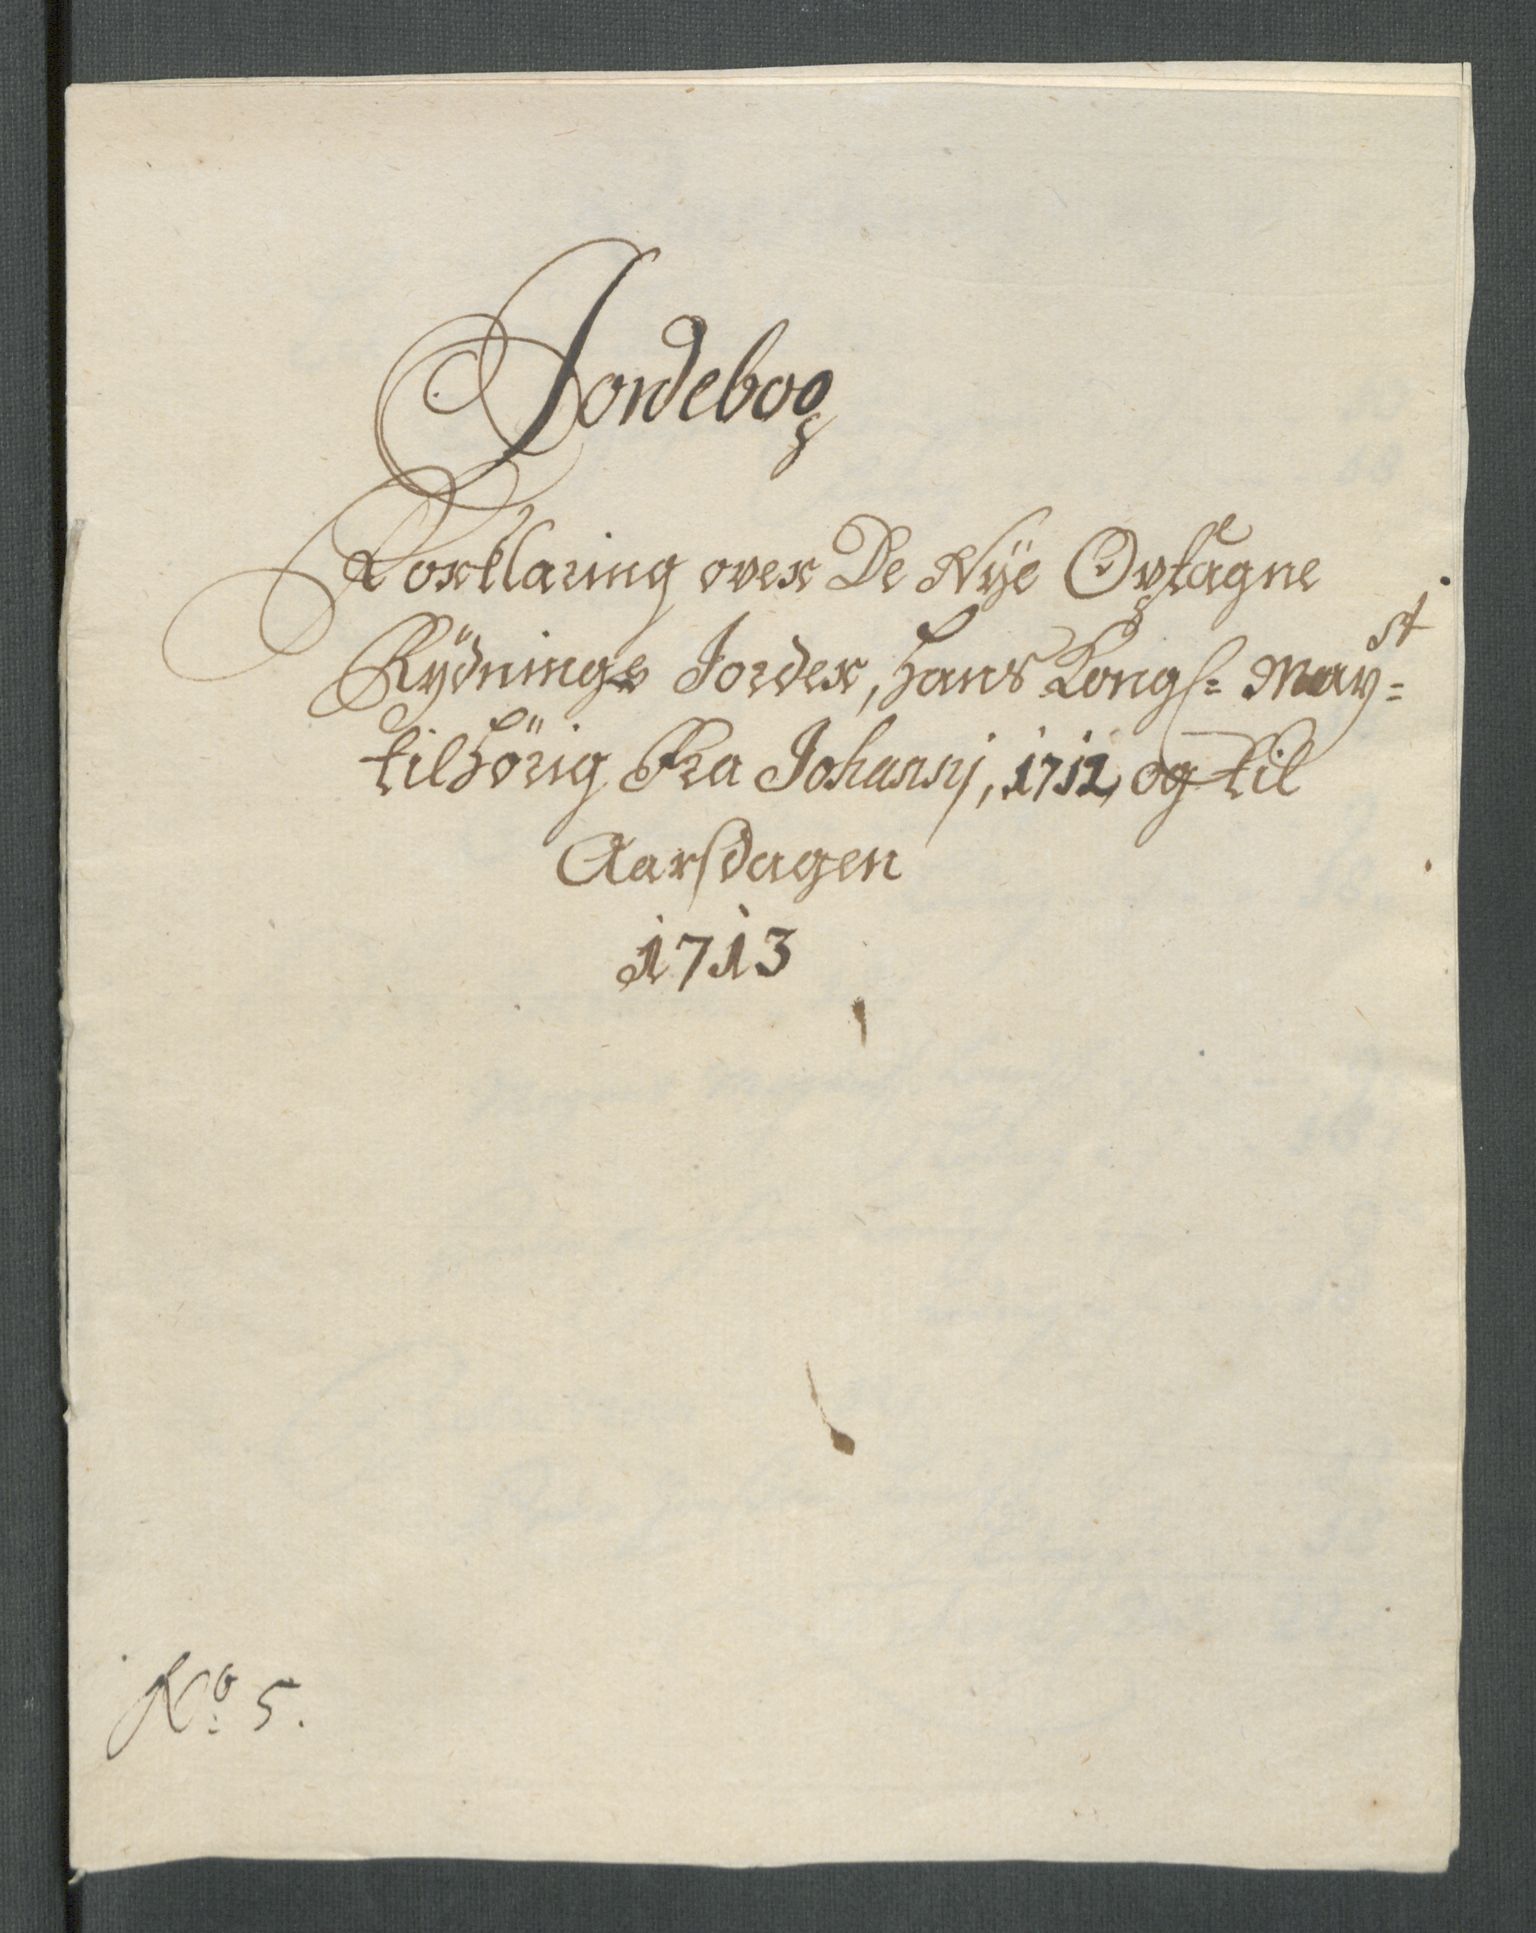 Jordebog
Forklaring over De Nÿe Optagne
Rÿdnings Jorder, hans Kongl: Mayst:
tilhörig Fra Johannj, 1712, og til
Aarsdagen
1713
No: 5.